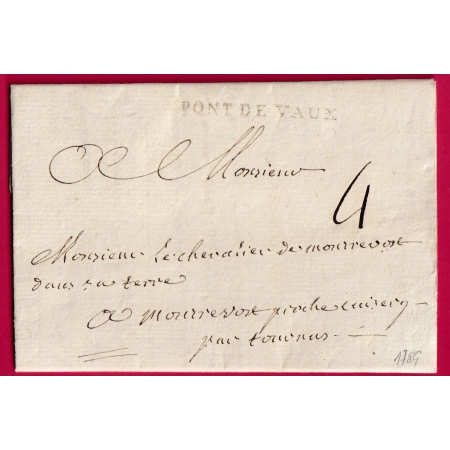 PONT DE VAUX
A Monsieur
4
Monsieur le chevalier de mourrevost
dans sa terre
A mourrevost proche cuisery
par tournus
1789